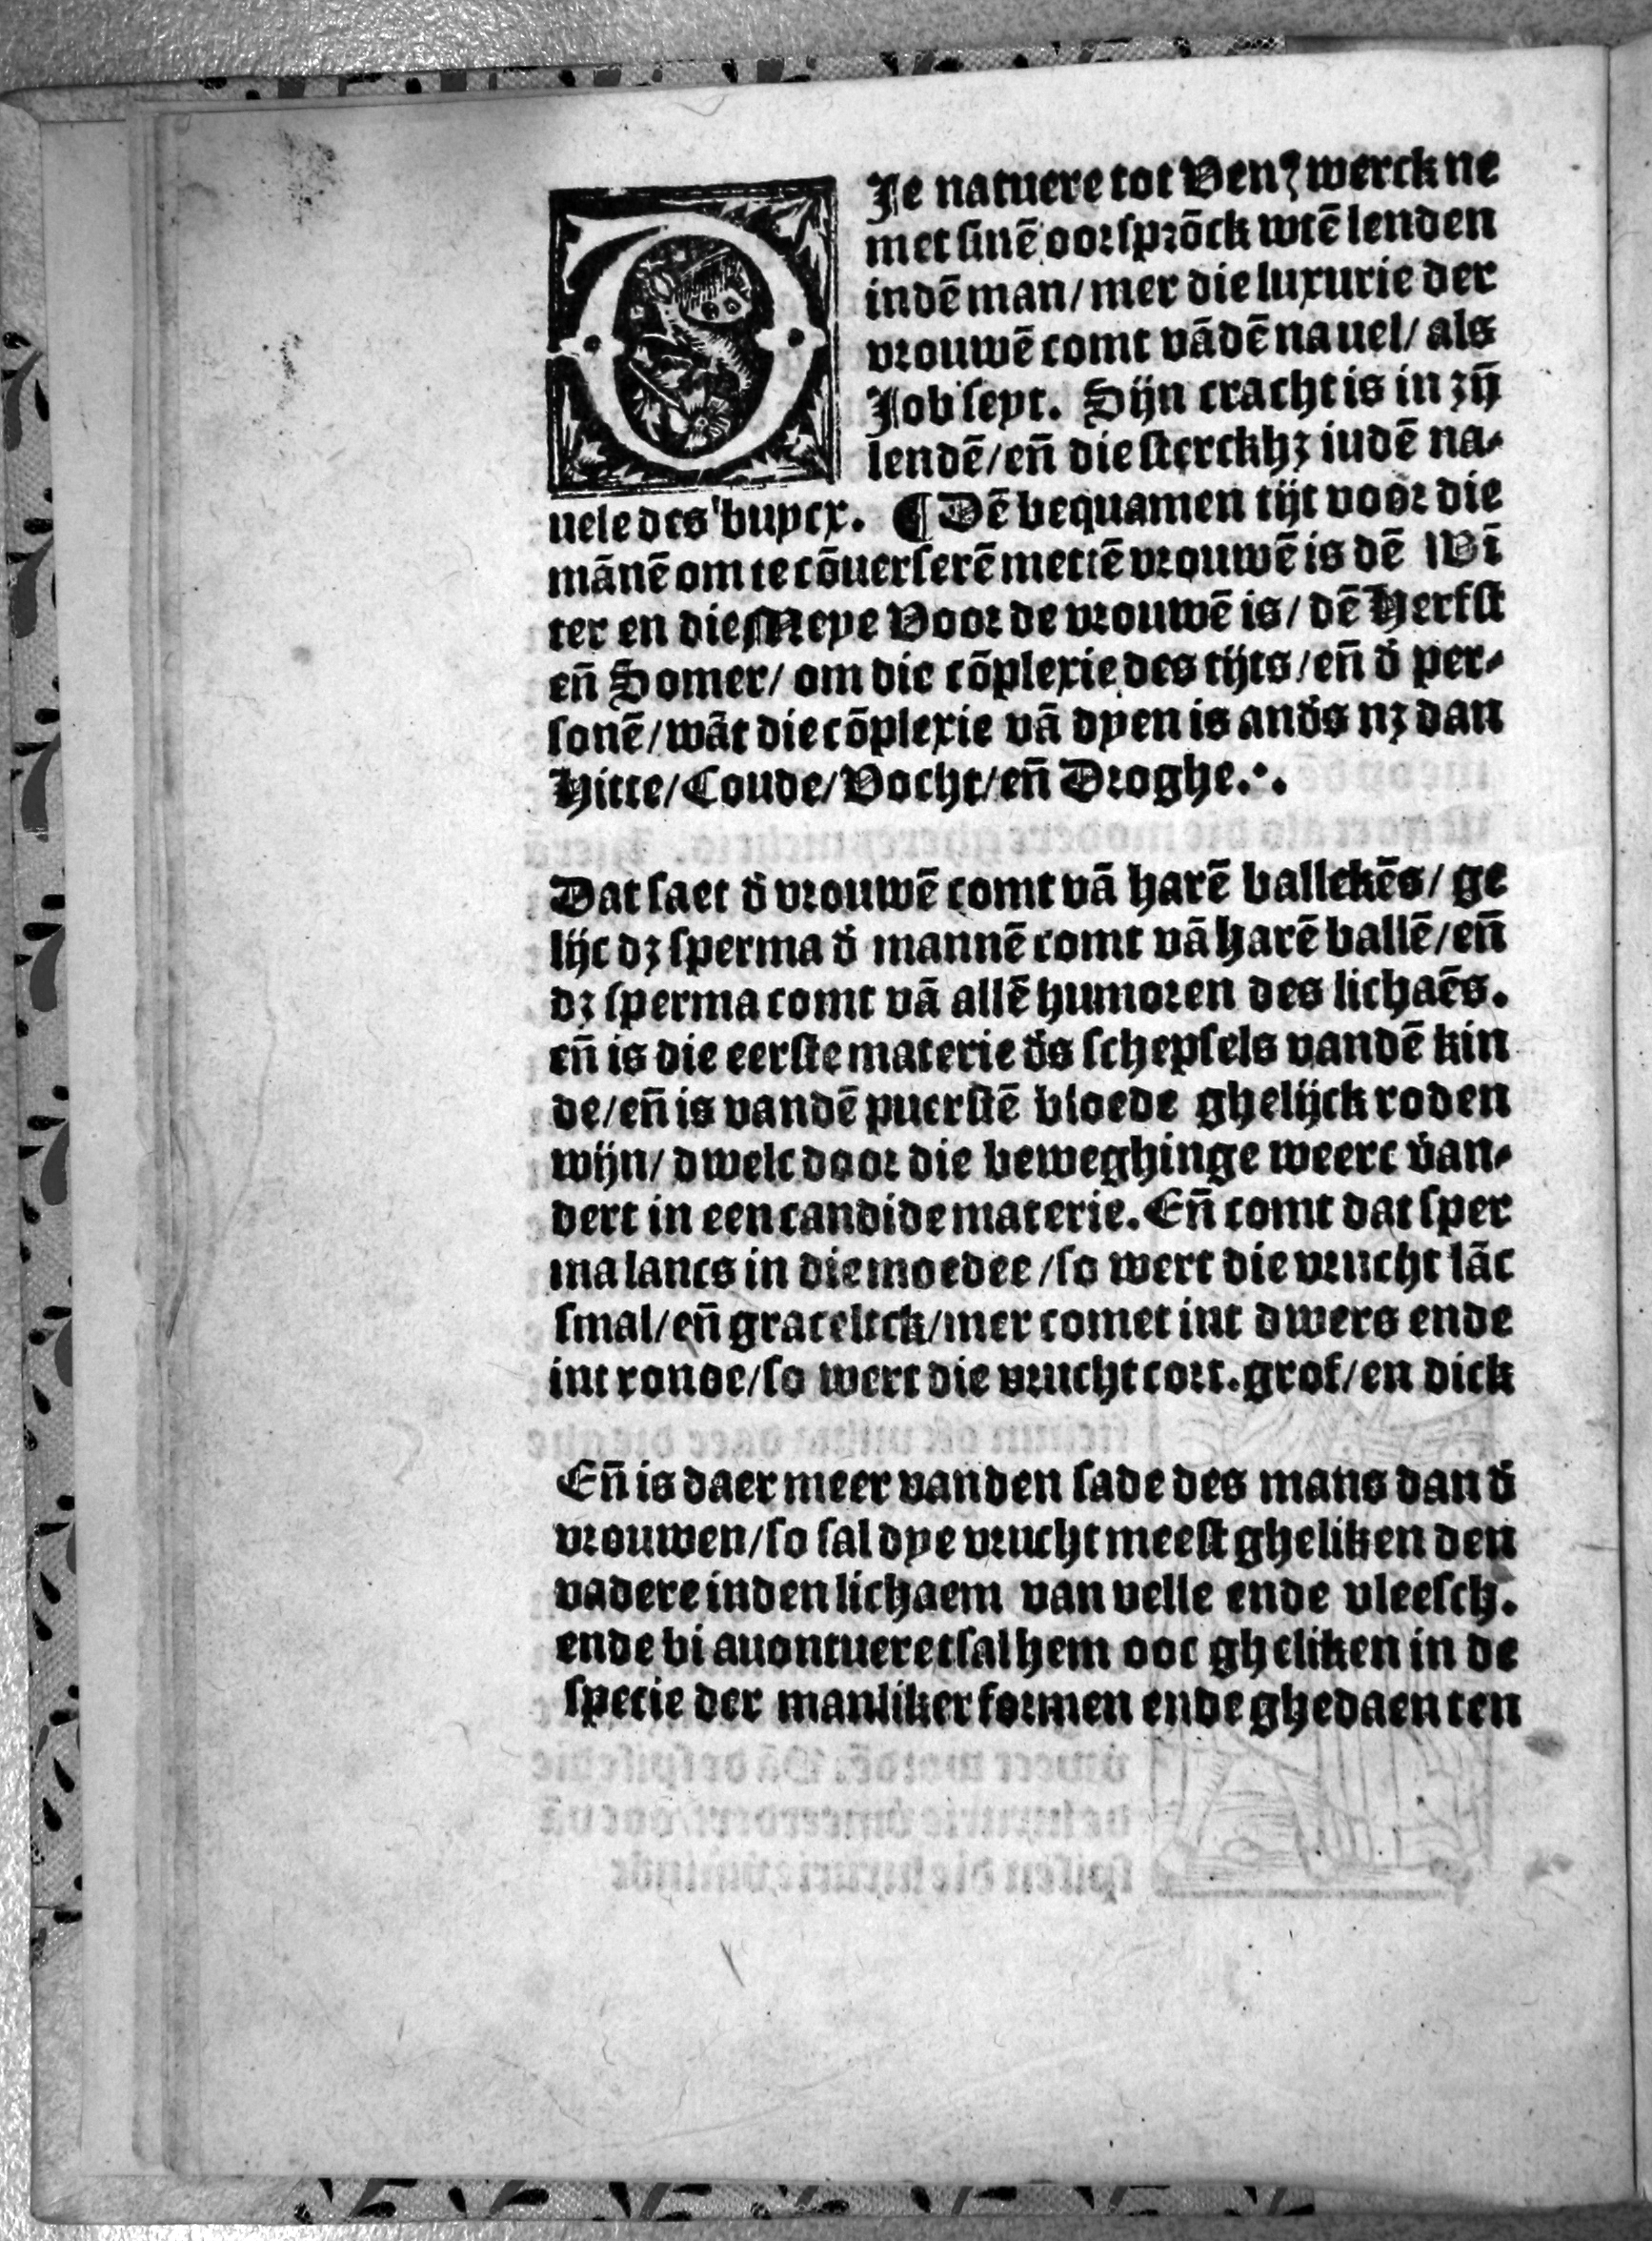 DIe natuere tot Venꝰ werck ne
met sinē oorsprōck wtē lenden
indē man/mer die luxurie der
vrouwē comt vādē nauel/als
Job seyt. Sijn cracht is in zijn̄
lendē/en̄ die sterckhꝫ indē na⸗
uele des buycx. ¶ Dē bequamen tijt voor die
mānē om te cōuerserē mettē vrouwē is dē Wī
ter en die Meye Voor de vrouwē is/dē Herfst
en̄ Somer/om die cōplexie des tijts/en̄ d̕ per⸗
sonē/wāt die cōplexie vā dyen is and̕s nꝫ dan
Hitte/Coude/Vocht/en̄ Droghe.·.
Dat saet d̕ vrouwē comt vā harē ballekēs/ge
lijc dꝫ sperma d̕ mannē comt vā harē ballē/en̄
dꝫ sperma comt vā allē humoren des lichaēs.
en̄ is die eerste materie d̕s schepsels vandē kin
de/en̄ is vandē puerstē bloede ghelijck roden
wijn/dwelc door die beweghinge weert v̕an⸗
dert in een candide materie. En̄ comt dat sper
ma lancs in die moedee/so wert die vrucht lāc
smal/en̄ gracelick/mer comet int dwers ende
int ronde/so wert die vrucht cort. grof/en dick
En̄ is daer meer vanden sade des mans dan d̕
vrouwen/so sal dye vrucht meest gheliken den
vadere inden lichaem van velle ende vleesch.
ende bi auontueret sal hem ooc gheliken in de
specie der manliker formen ende ghedaenten